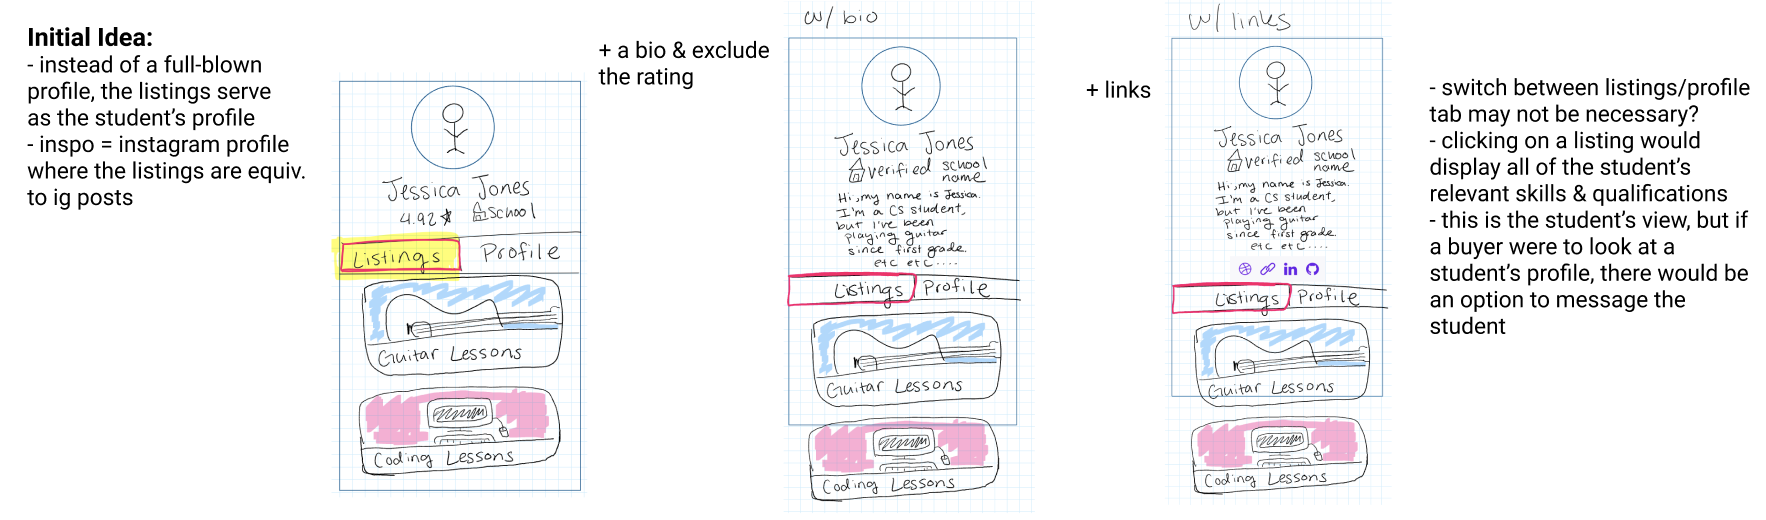 Initial Idea:
- instead of a full-blown
profile, the listings serve
as the student's profile
- inspo = instagram profile
where the listings are equiv.
to ig posts
Jessica Jones
4.92 School
Listings Profile
Guitar Lessons
Coding Lessons
+ a bio & exclude
the rating
w/ bio
Jessica Jones
verified school
name
Hi, my name is Jessica.
I'm a CS student,
but I've been
playing guitar
since first grade.
etc etc....
Listings Profile
Guitar Lessons
Coding Lessons
+ links
w/ links
Jessica Jones
verified school
name
Hi, my name is Jessica.
I'm a CS student,
but I've been
playing guitar
since first grade.
etc etc....
in
Listings Profile
Guitar Lessons
Coding Lessons
- switch between listings/profile
tab may not be necessary?
- clicking on a listing would
display all of the student's
relevant skills & qualifications
- this is the student's view, but if
a buyer were to look at a
student's profile, there would be
an option to message the
student